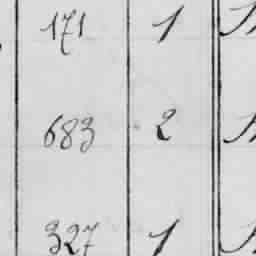 171 1
683 2
327 1